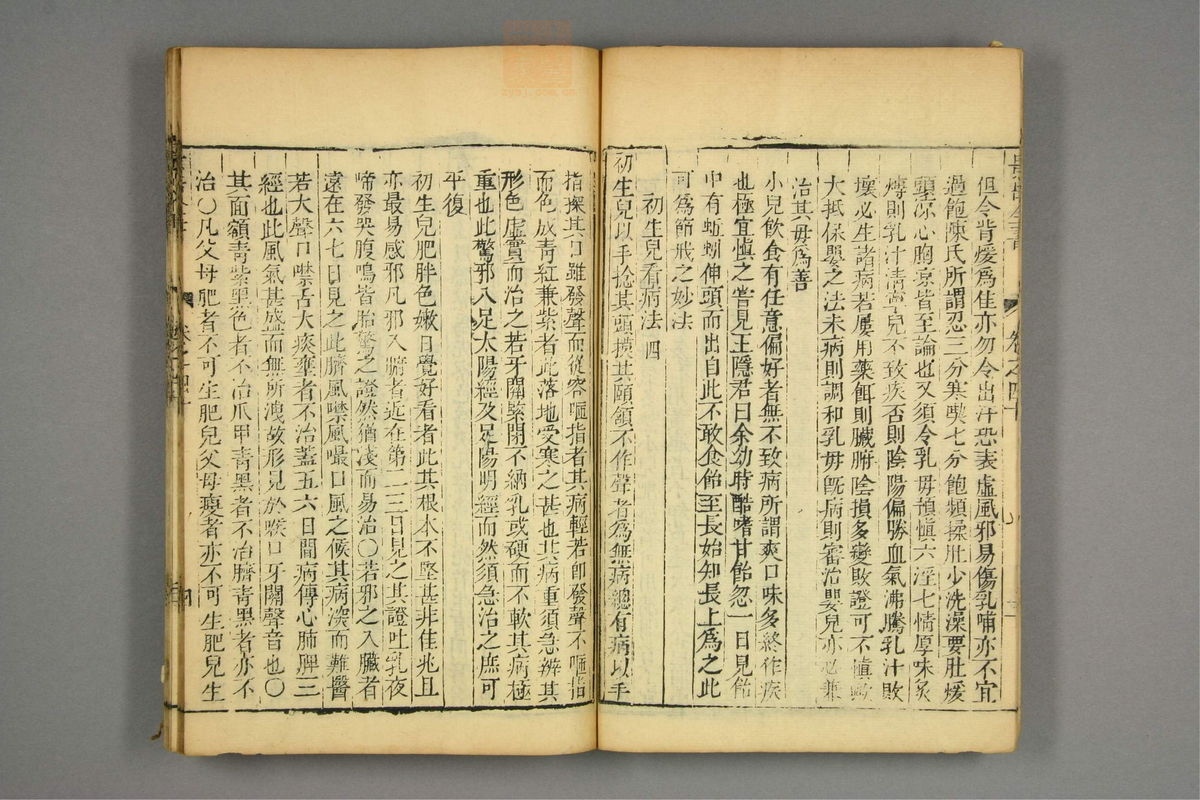 但令背煖爲佳亦勿令出汗恐表虛風邪易傷乳哺亦不宜
過飽陳氏所謂忍三分寒喫七分飽頻揉肚少洗澡要肚煖
頭凉心胸凉皆至論也又須令乳母預愼六淫七情厚味炙
煿則乳汁清寧兒不致疾否則陰陽偏勝血氣沸騰乳汁敗
壞必生諸病若屢用藥餌則臟腑陰損多變敗證可不愼歟
大抵保嬰之法未病則調和乳母旣病則審治嬰兒亦必兼
治其母爲善
小兒飲食有任意偏好者無不致病所謂爽口味多終作疾
也極宜愼之嘗見王隱君曰余幼時酷嗜甘飴忽一日見飴
中有蚯蚓伸頭而出自此不敢食飴至長始知長上爲之此
可爲節戒之妙法
初生兒看病法 四
初生兒以手捻其頭摸其頤頷不作聲者爲無病總有病以手
指探其口雖發聲而從容咂指者其病輕若卽發聲不咂指
而色或青紅兼紫者此落地受寒之甚也其病重須急辨其
形色虛實而治之若牙關緊閉不納乳或硬而不軟其病極
重也此驚邪入足太陽經及足陽明經而然須急治之庶可
平復
初生兒肥胖色嫩日覺好看者此其根本不堅甚非佳兆且
亦最易感邪凡邪入臍者近在第一二三日見之其證吐乳夜
啼發哭腹鳴皆胎驚之證然猶淺而易治〇若邪之入臟者
遠在六七日見之此臍風噤風撮口風之候其病深而難醫
若大聲口噤舌大痰壅者不治蓋五六日間病傳心肺脾三
經也此風氣甚盛而無所洩故形見於喉口牙關聲音也〇
其面額青紫黑色者不治爪甲青黑者不治臍青黑者亦不
治〇凡父母肥者不可生肥兒父母瘦者亦不可生肥兒生